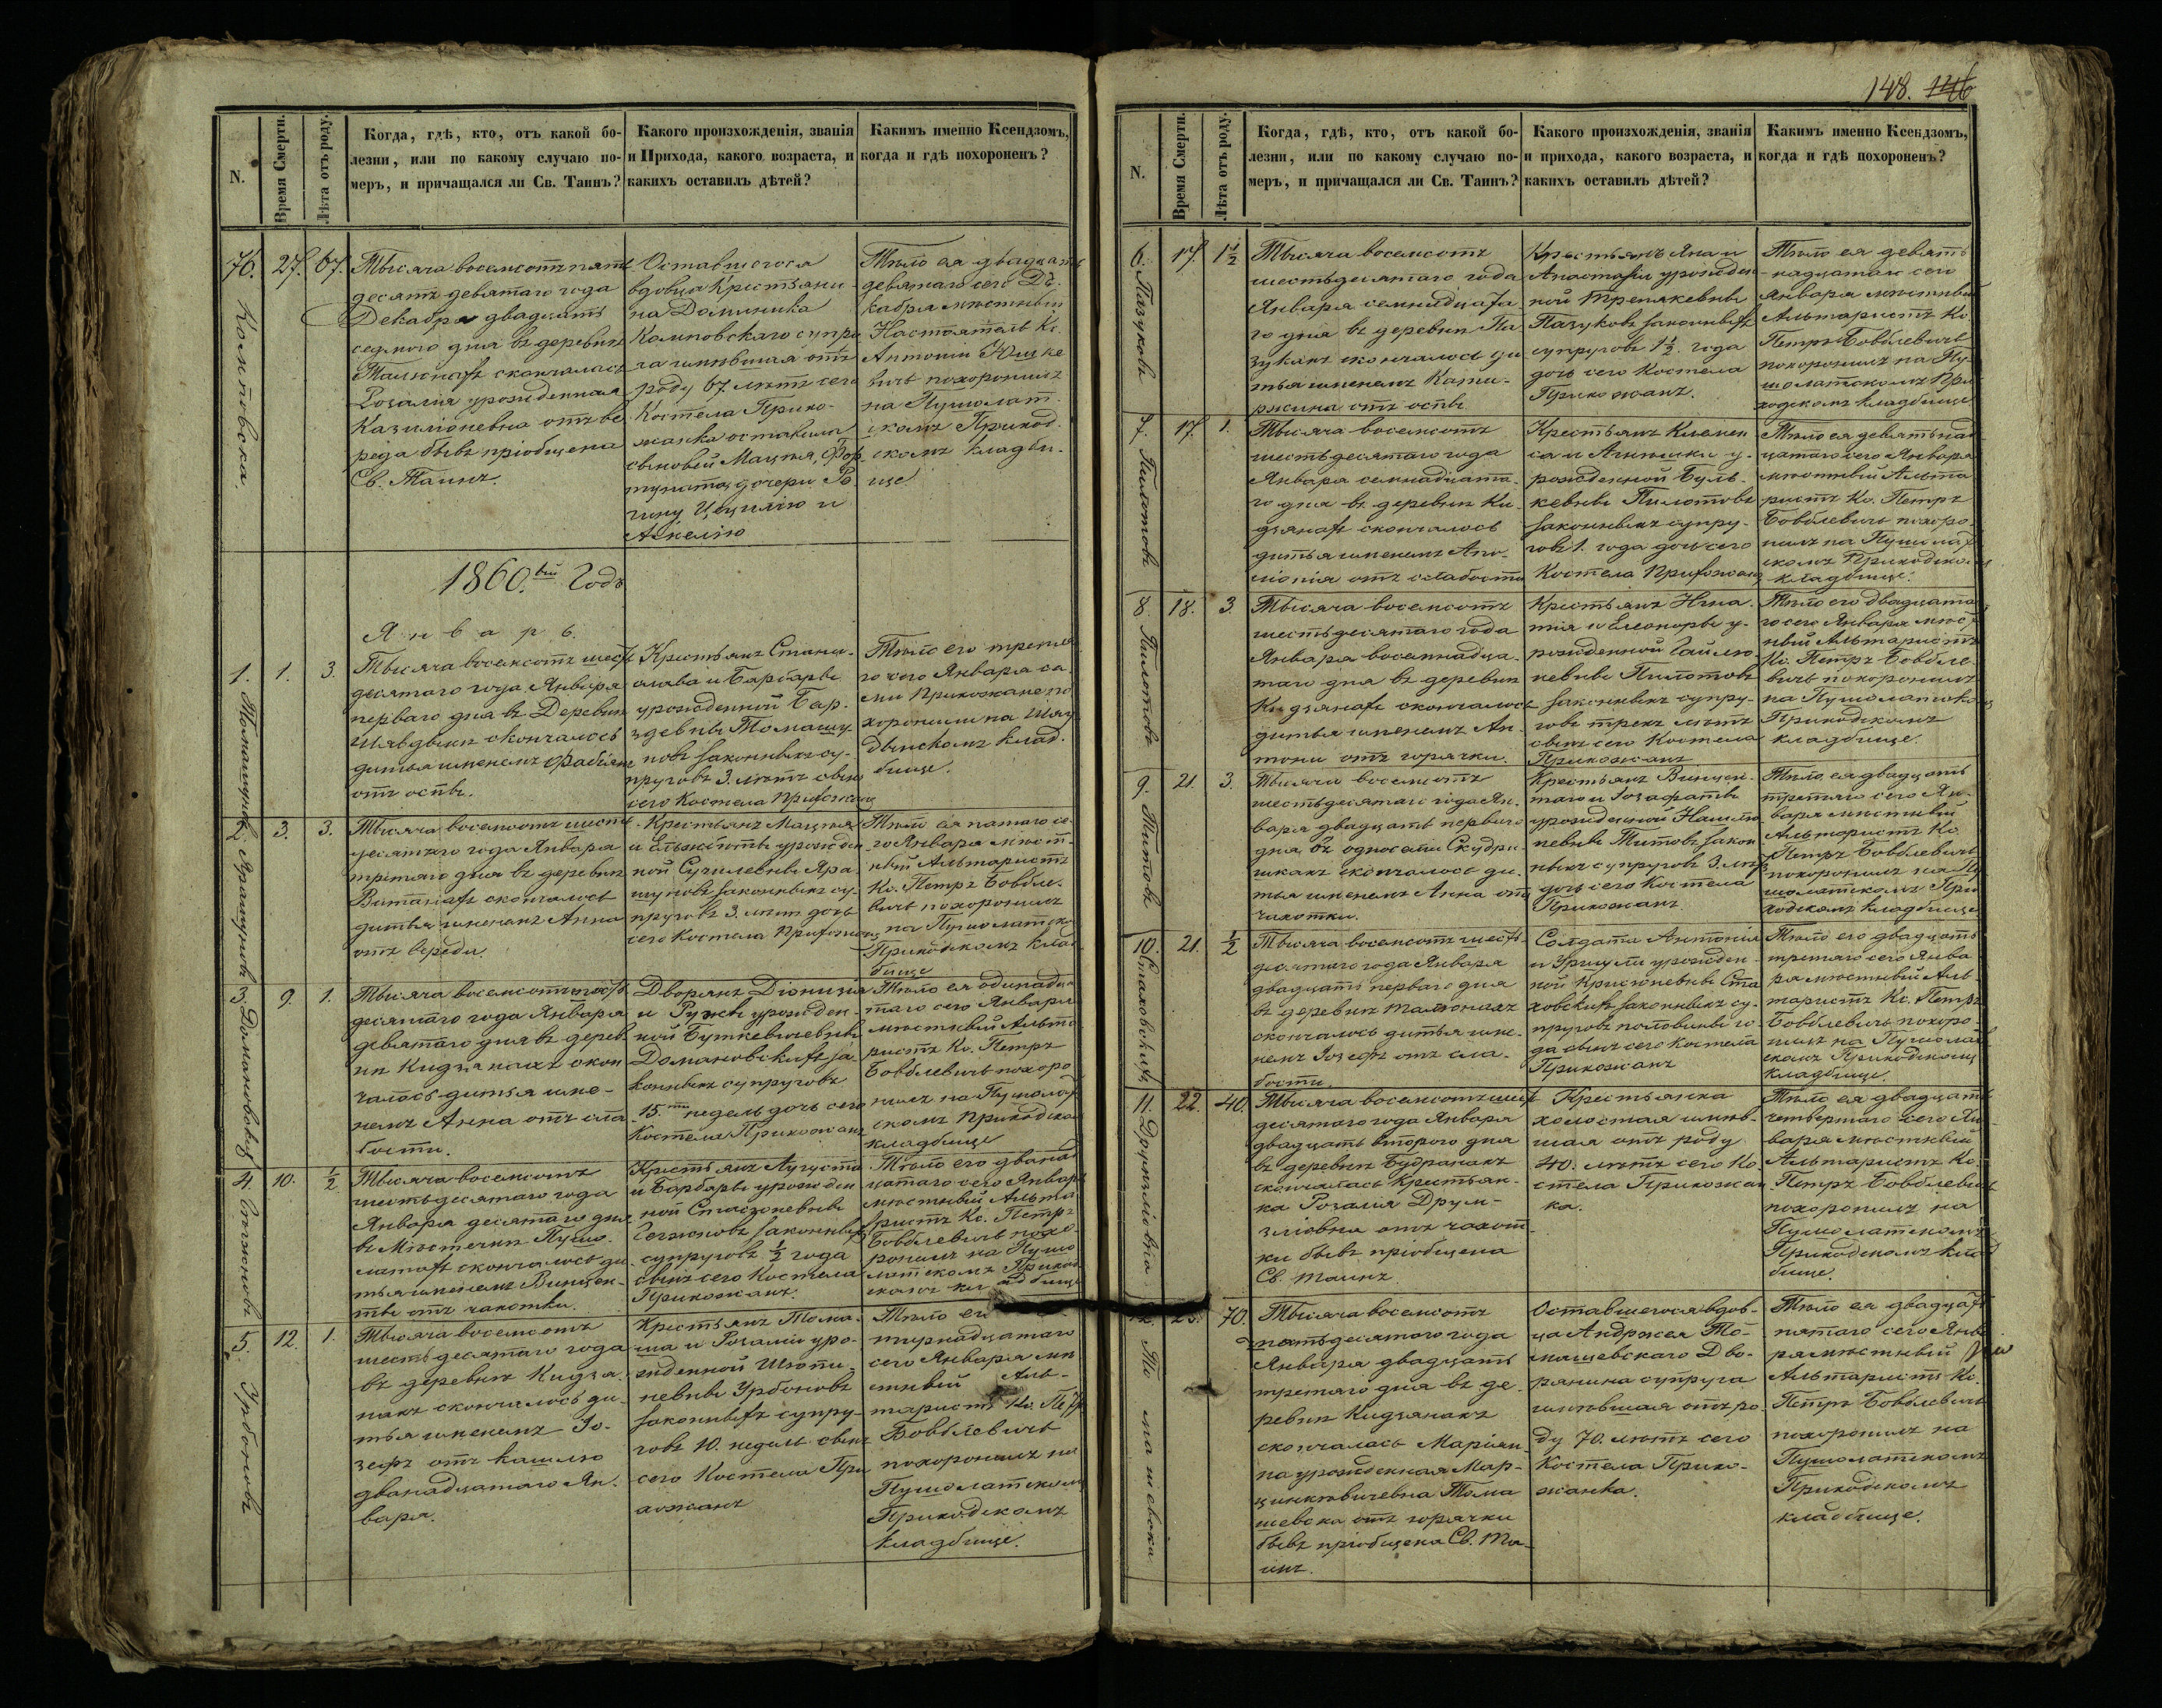 148. 146
N.
Время Смерти.
Лѣта отъ роду.
Когда, гдѣ, кто, отъ какой бо-
лезни, или по какому случаю по-
меръ, и причащался ли Св. Таинъ?
Какого произхожденія, званія
и Прихода, какого возраста, и
какихъ оставилъ дѣтей?
Какимъ именно Ксендзомъ,
когда и гдѣ похороненъ?
76.
27.
67.
Тысяча восемсотъ пять
десятъ девятаго года
Декабря двадцать
седмого дня въ деревнѣ
скончалась
Розалия урожденная
Казимоневна отъ ве
реда бывъ пріобщена
Св. Таинъ.
Оставшегося
вдовца Крестьяни-
на Доминика
Комповскаго супру
га имѣвшая отъ
роду 67 лѣтъ сего
Костела Прихо-
жанка оставила
сыновей Мацея, Фор
туната, дочери Ре
гину Цецилію и
Анелію
Тѣло ея двадцать
девятаго сего Де-
кабря мѣстный
Настоятель Кс.
Антоній Юшке
вичъ похоронилъ
на Пушолат-
скомъ Приход-
скомъ кладби-
ще
1860.ый Годъ
Январь.
1.
1.
3.
Томашуновъ
Тысяча восемсотъ шесть
десятаго года Января
перваго дня въ Деревнѣ
скончалось
дитья именемъ Фабіянъ
отъ оспы.
Крестьянъ Стани-
слава и Барбары
урожденной Бар-
здевны Томашу
новъ законныхъ су-
пруговъ 3. лѣтъ сынъ
сего Костела Прихожанъ
Тѣло его третья
го сего Января са
ми Прихожане по
хоронили на
клад-
бище.
2.
3.
3.
Ярашуновъ
Тысяча восемсотъ шесть
десятаго года Января
третяго дня въ деревнѣ
Витанахъ скончалось
дитья именемъ Анна
отъ вереда.
Крестьянъ Мацея
и Ельжбеты урожден
ной Сучилевны Яра
шуновъ законныхъ су-
пруговъ 3. лѣтъ дочь
сего Костела Прихожанъ
Тѣло ея пятаго се-
го Января мѣст-
ный Альтаристъ
Кс. Петръ Бовбле-
вичъ похоронилъ
на Пушолатско
Приходскомъ клад
бище
3.
9.
1.
Домановскихъ
Тысяча восемсотъ шесть
десятаго года Января
девятаго дня въ дерев
нѣ Кидзянахъ скон
чалось дитья име-
немъ Анна отъ сла
бости.
Дворянъ Діонизія
и Ружи урожден-
ной Буткевичевны
Домановскихъ за-
конныхъ супруговъ
15.ти недель дочь сего
Костела Прихожанъ
Тѣло ея одинадца
таго сего Января
мѣстный Альта
ристъ Кс. Петръ
Бовблевичъ похоро
нилъ на Пушолат
скомъ Приходском
кладбище
4.
10.
1/2
Тысяча восемсотъ
шестьдесятаго года
Января десятаго дня
въ Мѣстечкѣ Пушо-
латахъ скончалось ди-
тья именемъ Винцен-
ты отъ чахотки.
Крестьянъ Августа
и Барбары урожден
ной
законныхъ
супруговъ 1/2 года
сынъ сего Костела
Прихожанъ.
Тѣло его двана
цатаго сего Января
мѣстный Альта
ристъ Кс. Петръ
Бовблевичъ похо
ронилъ на Пушо
латскомъ Приход
скомъ кладбище
5.
12.
1.
Урбоновъ
Тысяча восемсотъ
шестьдесятаго года
въ деревнѣ Кидзя
нахъ скончалось ди
тья именемъ Іо-
зефъ отъ кашлю
дванадцатаго Ян-
варя.
Крестьянъ Тома-
ша и Розаліи уро-
жденной
невны Урбоновъ
законныхъ супру-
говъ 10. недель сынъ
сего Костела При
хожанъ
Тѣло его
тырнадцатаго
сего Января мѣ
стный Аль-
таристъ Кс. Петръ
Бовблевичъ
похоронилъ на
Пушолатскомъ
Приходскомъ
кладбище.
N.
Время Смерти.
Лѣта отъ роду.
Когда, гдѣ, кто, отъ какой бо-
лезни, или по какому случаю по-
меръ, и причащался ли Св. Таинъ?
Какого произхожденія, званія
и прихода, какого возраста, и
какихъ оставилъ дѣтей?
Какимъ именно Ксендзомъ,
когда и гдѣ похороненъ?
6.
17.
1 1/2
Пазуковъ
Тысяча восемсотъ
шестьдесятаго года
Января семнадцата
го дня въ деревнѣ Па
зукахъ скончалось ди
тья именемъ Ката-
ржина отъ оспы
Крестьянъ Яна и
Анастазіи урожден
ной Трепякевны
Пазуковъ законныхъ
супруговъ 1 1/2 года
дочь сего Костела
Прихожанъ.
Тѣло ея девять
надцатаго сего
Января мѣстный
Альтаристъ Кс.
Петръ Бовблевичъ
похоронилъ на Пу-
шолатскомъ При
ходскомъ кладбище
7.
17.
1.
Пилотовъ
Тысяча восемсотъ
шестьдесятаго года
Января семнадцата-
го дня въ деревнѣ Ки-
дзянахъ скончалось
дитья именемъ Апо-
лонія отъ слабости
Крестьянъ Клемен
са и Агнѣшки у-
рожденной Буль-
кевны Пилотовъ
законныхъ супру-
говъ 1. года дочь сего
Костела Прихожанъ
Тѣло ея девятьнад
цатаго сего Января
мѣстный Альта
ристъ Кс. Петръ
Бовблевичъ похоро
нилъ на Пушолат
скомъ Приходском
кладбище.
8.
18.
3.
Пилотовъ
Тысяча восемсотъ
шестьдесятаго года
Января восемнадца-
таго дня въ деревнѣ
Кидзянахъ скончалось
дитья именемъ Ан-
тони отъ горячки.
Крестьянъ Игна-
тія и Елеоноры у-
рожденной Гайлю-
невны Пилотовъ
законныхъ супру-
говъ трехъ лѣтъ
сынъ сего Костела
Прихожанъ
Тѣло его двадцата
го сего Января мѣст
ный Альтаристъ
Кс. Петръ Бовбле
вичъ похоронилъ
на Пушолатском
Приходскомъ
кладбище.
9.
21.
3.
Титовъ
Тысяча восемсотъ
шестьдесятаго года Ян-
варя двадцать перваго
дня въ односели Скудри
шкахъ скончалось ди-
тья именемъ Анна отъ
чахотки.
Крестьянъ Винцен-
таго и Іозафаты
урожденной
невны Титовъ закон
ныхъ супруговъ 3. лѣтъ
дочь сего Костела
Прихожанъ
Тѣло ея двадцать
третяго сего Ян-
варя мѣстный
Альтаристъ Кс.
Петръ Бовблевичъ
похоронилъ на Пу
шолатскомъ При
ходскомъ кладбище
10.
21.
1/2
Стаховскихъ
Тысяча восемсотъ шесть-
десятаго года Января
двадцать перваго дня
въ деревнѣ
скончалось дитья име-
немъ Іозефъ отъ сла-
бости.
Солдата Антонія
и Уршули урожден-
ной Ста
ховскихъ законныхъ су-
пруговъ половины го-
да сынъ сего Костела
Прихожанъ
Тѣло его двадцать
третяго сего Янва
ря мѣстный Аль-
таристъ Кс. Петръ
Бовблевичъ похоро
нилъ на Пушолат
скомъ Приходскомъ
кладбище.
11.
22.
40.
Тысяча восемсотъ шесть
десятаго года Января
двадцать второго дня
въ деревнѣ
скончалась Крестьян-
ка Розалія Друм-
зліовна отъ чахот
ки бывъ пріобщена
Св. Таинъ
Крестьянка
холостая имѣв-
шая отъ роду
40. лѣтъ сего Ко-
стела Прихожан
ка.
Тѣло ея двадцать
четвертаго сего Ян
варя мѣстный
Альтаристъ Кс.
Петръ Бовблевичъ
похоронилъ на
Пушолатскомъ
Приходскомъ клад
бище.
70.
Томашевска
Тысяча восемсотъ
десятаго года
Января двадцать
третяго дня въ де-
ревнѣ Кидзянахъ
скончалась Маріян-
на урожденная Мар-
цинкѣвичевна Тома
шевска отъ горячки
бывъ пріобщена Св. Та-
инъ.
Оставшегося вдов-
ца Андржея То-
машевскаго Дво-
рянина супруга
имѣвшая отъ ро-
ду 70. лѣтъ сего
Костела Прихо-
жанка.
Тѣло ея двадцать
пятаго сего Янва
ря мѣстный
Альтаристъ Кс.
Петръ Бовблевичъ
похоронилъ на
Пушолатскомъ
Приходскомъ
кладбище.